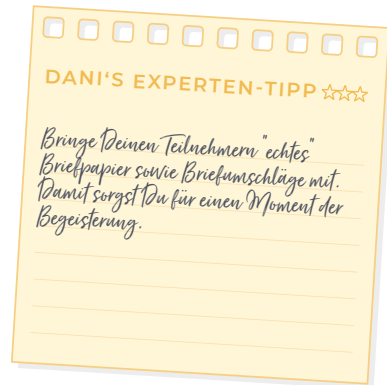 DANI'S EXPERTEN-TIPP
Bringe Deinen Teilnehmern "echtes"
Briefpapier sowie Briefumschläge mit.
Damit sorgst Du für einen Moment der
Begeisterung.